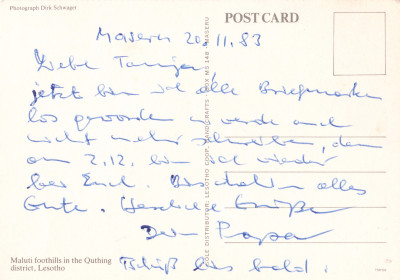 Photograph Dirk Schwager
POST CARD
Maseru 20.11.83
Liebe Tanja,
jetzt bin ich alle Briefmarken
los geworden u. werde auch
nicht mehr schreiben, denn
am 2.12. bin ich wieder
bei Euch. Bis dahin alles
Gute. Herzliche Grüße
Dein Papa
Tschüß bis bald!
Maluti foothills in the Quthing
district, Lesotho
SOLE DISTRIBUTOR, LESOTHO COOP. HANDICRAFTS MS 148 MASERU